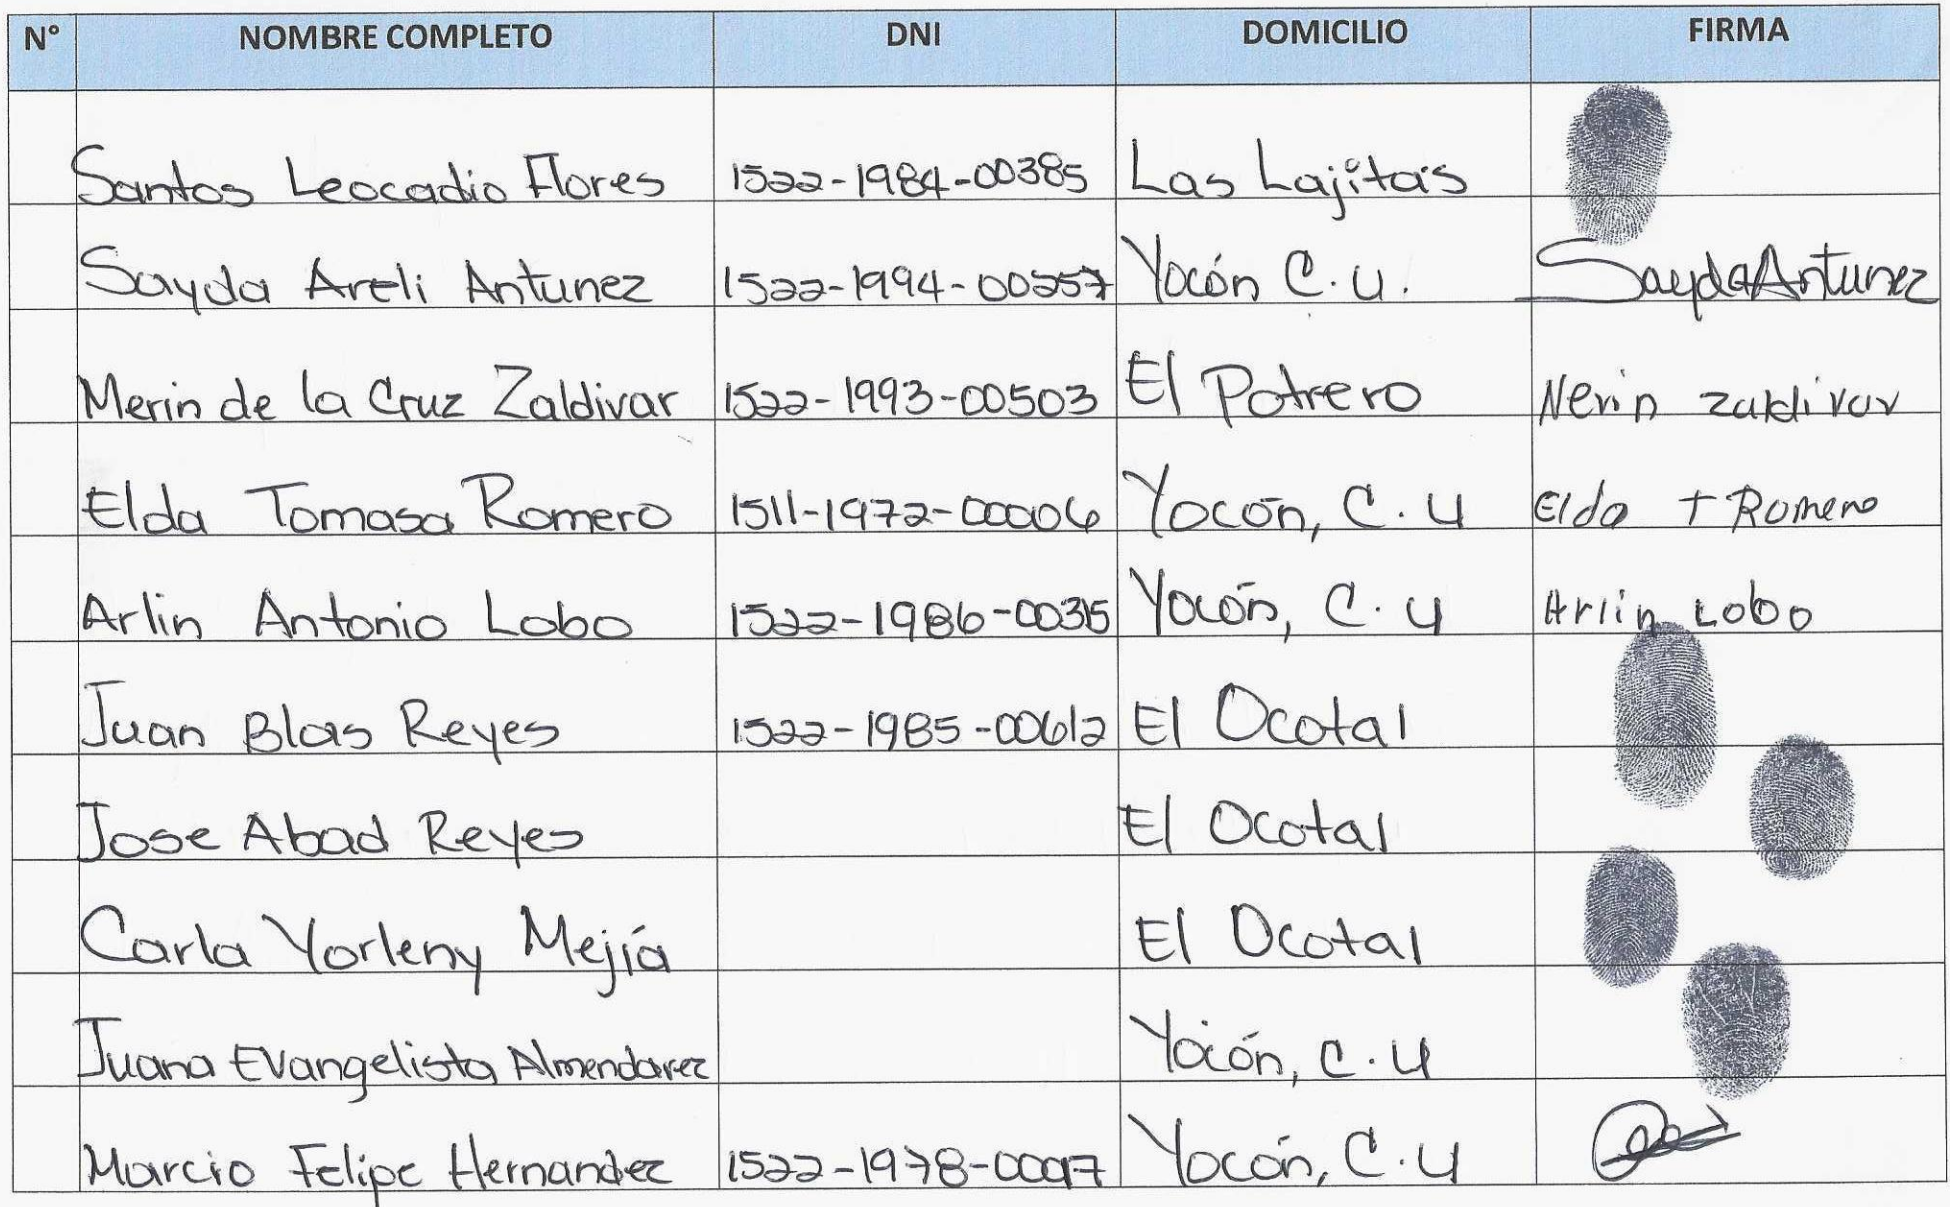 N° NOMBRE COMPLETO DNI DOMICILIO FIRMA
Santos Leocadio Flores 1522-1984-00385 Las Lajitas
Sayda Areli Antunez 1522-1994-00257 Yocón C.U. Sayda Antunez
Merin de la Cruz Zaldivar 1522-1993-00503 El Potrero Nerin Zaldivar
Elda Tomasa Romero 1511-1972-00006 Yocón, C.U Elda T Romero
Arlin Antonio Lobo 1522-1986-00315 Yocón, C.U Arlin Lobo
Juan Blas Reyes 1522-1985-00612 El Ocotal
Jose Abad Reyes El Ocotal
Carla Yorleny Mejía El Ocotal
Juana Evangelista Almendarez Yocón, C.U
Marcio Felipe Hernandez Yocón, C.U